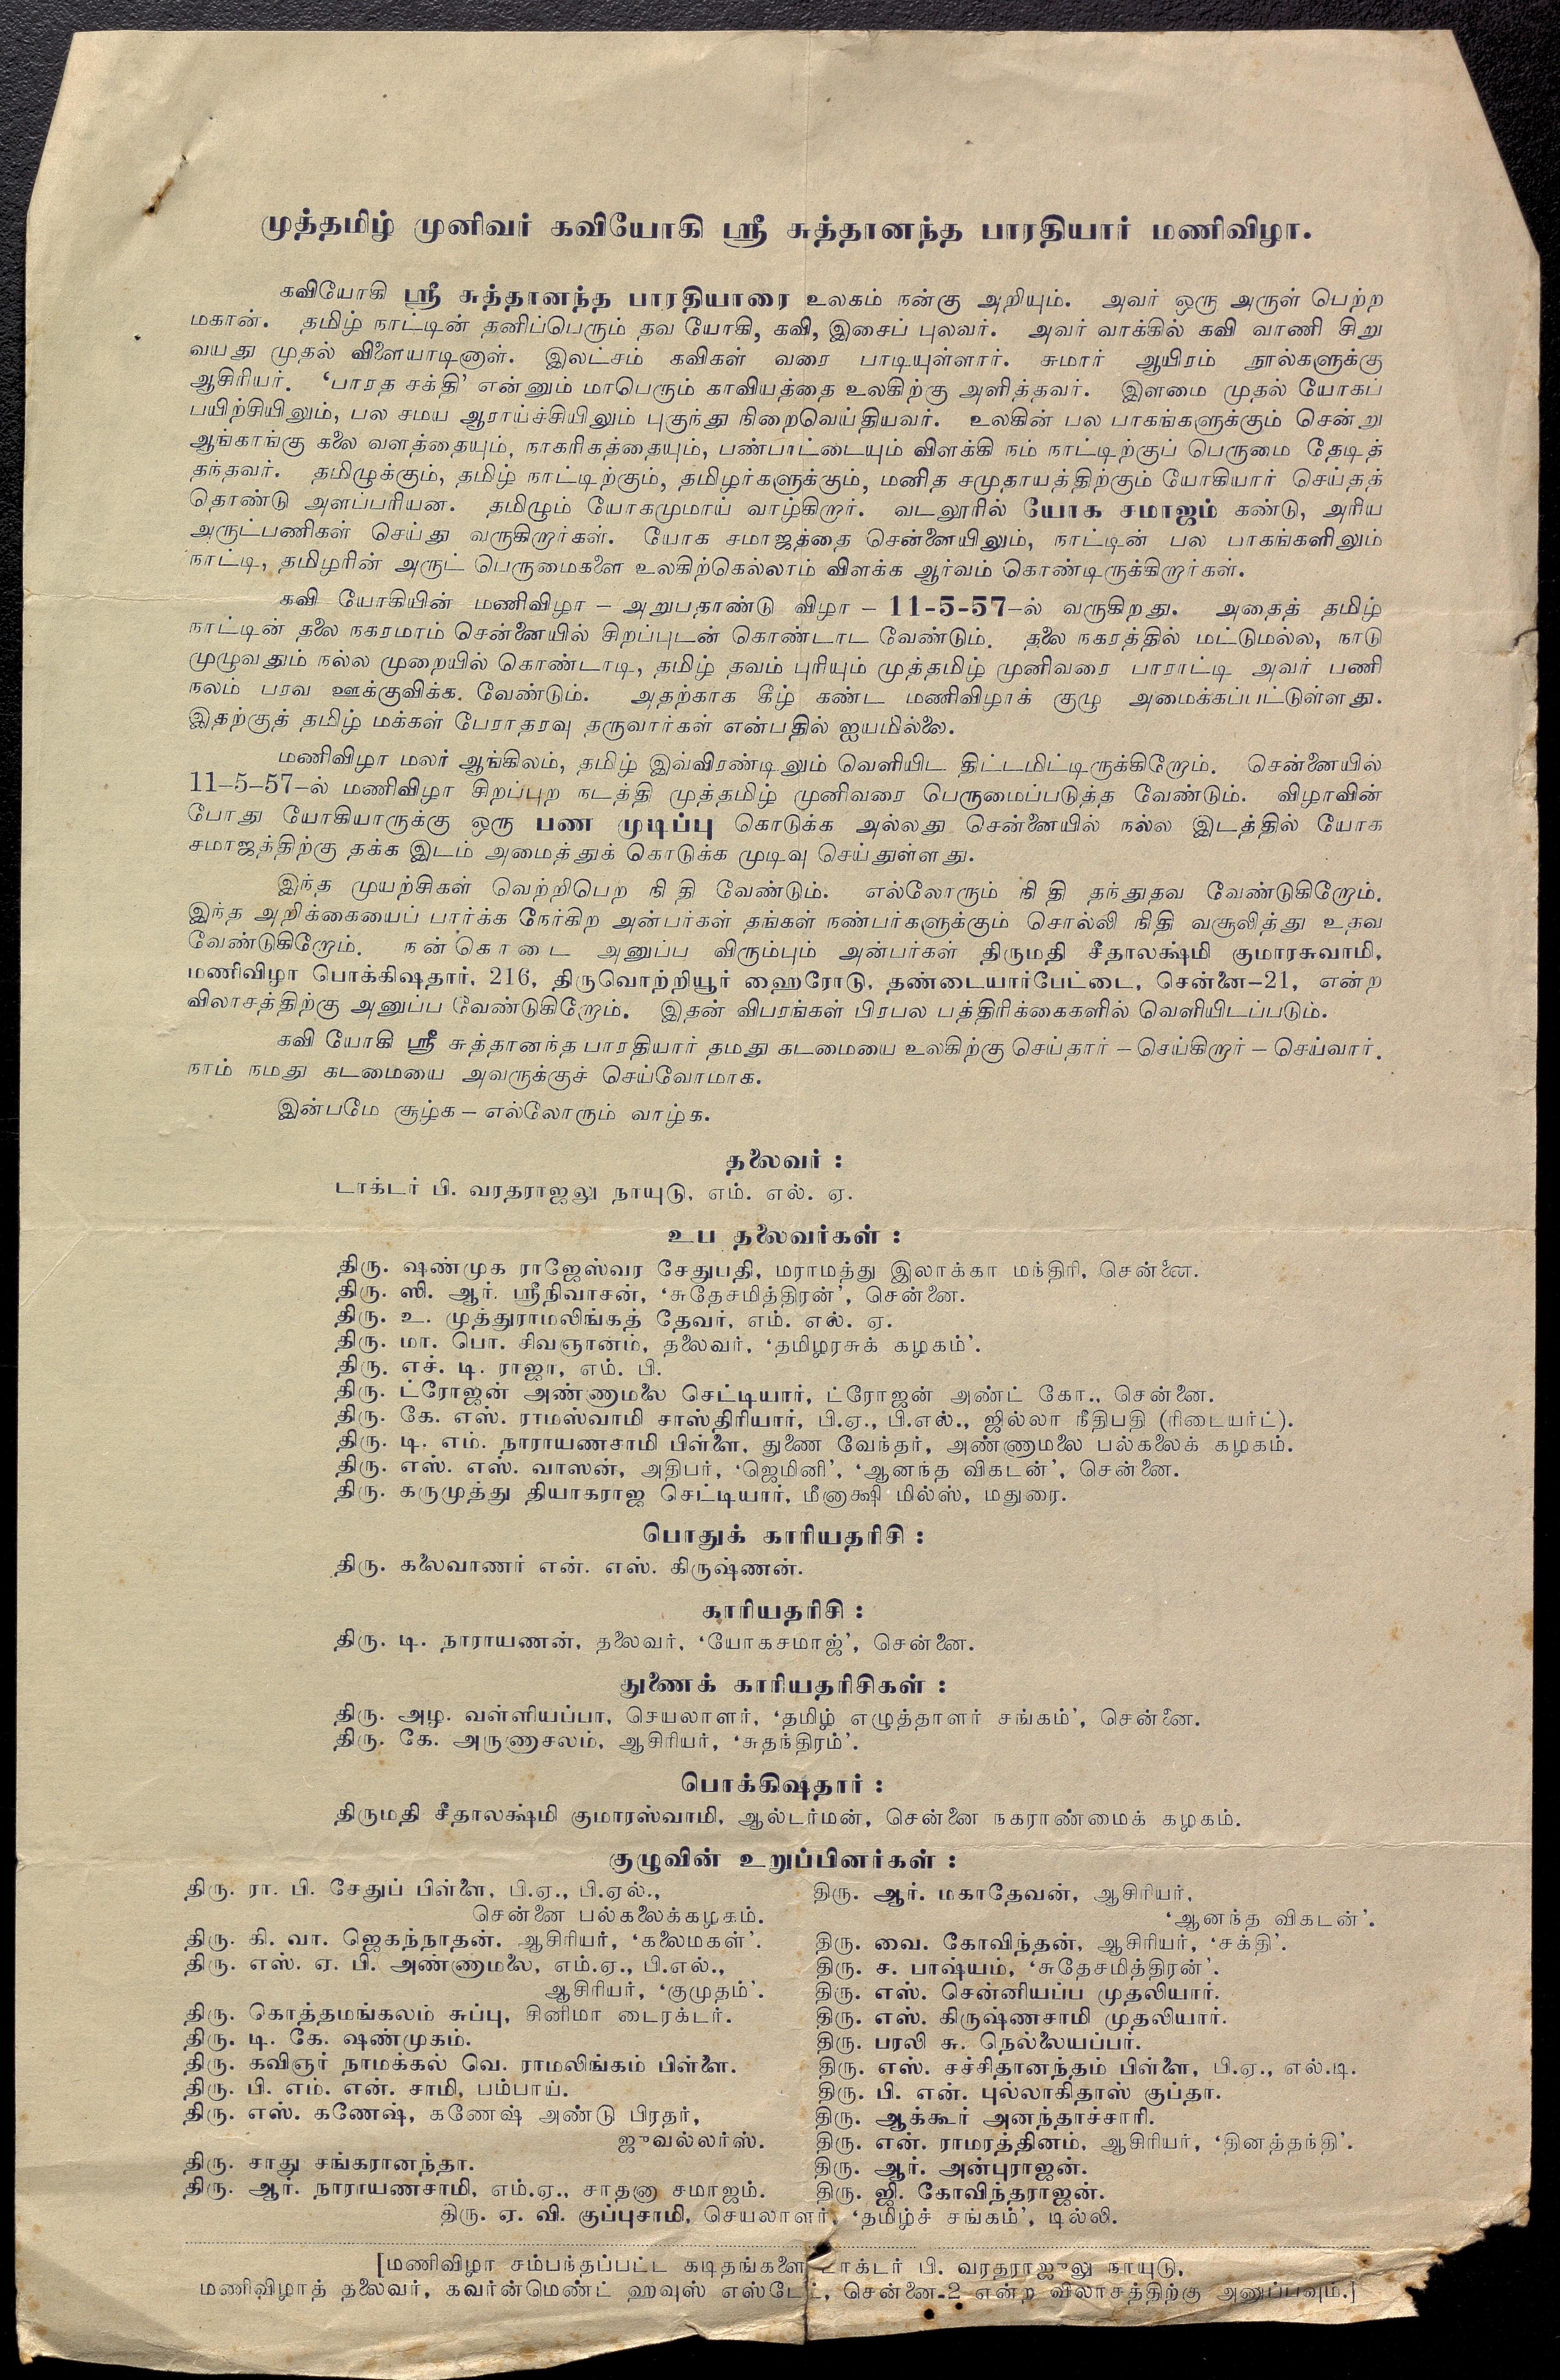 முத்தமிழ் முனிவர் கவியோகி ஸ்ரீ சுத்தானந்த பாரதியார் மணிவிழா.
கவியோகி ஸ்ரீ சுத்தானந்த பாரதியாரை உலகம் நன்கு அறியும். அவர் ஒரு அருள் பெற்ற
மகான். தமிழ் நாட்டின் தனிப்பெரும் தவ யோகி, கவி, இசைப் புலவர். அவர் வாக்கில் கவி வாணி சிறு
வயது முதல் விளையாடினாள். இலட்சம் கவிகள் வரை பாடியுள்ளார். சுமார் ஆயிரம் நூல்களுக்கு
ஆசிரியர். ‘பாரத சக்தி’ என்னும் மாபெரும் காவியத்தை உலகிற்கு அளித்தவர். இளமை முதல் யோகப்
பயிற்சியிலும், பல சமய ஆராய்ச்சியிலும் புகுந்து நிறைவெய்தியவர். உலகின் பல பாகங்களுக்கும் சென்று
ஆங்காங்கு கலை வளத்தையும், நாகரிகத்தையும், பண்பாட்டையும் விளக்கி நம் நாட்டிற்குப் பெருமை தேடித்
தந்தவர். தமிழுக்கும், தமிழ் நாட்டிற்கும், தமிழர்களுக்கும், மனித சமுதாயத்திற்கும் யோகியார் செய்தத்
தொண்டு அளப்பரியன. தமிழும் யோகமுமாய் வாழ்கிறார். வடலூரில் யோக சமாஜம் கண்டு, அரிய
அருட்பணிகள் செய்து வருகிறார்கள். யோக சமாஜத்தை சென்னையிலும், நாட்டின் பல பாகங்களிலும்
நாட்டி, தமிழரின் அருட் பெருமைகளை உலகிற்கெல்லாம் விளக்க ஆர்வம் கொண்டிருக்கிறார்கள்.
கவி யோகியின் மணிவிழா – அறுபதாண்டு விழா – 11-5-57–ல் வருகிறது. அதைத் தமிழ்
நாட்டின் தலை நகரமாம் சென்னையில் சிறப்புடன் கொண்டாட வேண்டும். தலை நகரத்தில் மட்டுமல்ல, நாடு
முழுவதும் நல்ல முறையில் கொண்டாடி, தமிழ் தவம் புரியும் முத்தமிழ் முனிவரை பாராட்டி அவர் பணி
நலம் பரவ ஊக்குவிக்க வேண்டும். அதற்காக கீழ் கண்ட மணிவிழாக் குழு அமைக்கப்பட்டுள்ளது.
இதற்குத் தமிழ் மக்கள் பேராதரவு தருவார்கள் என்பதில் ஐயமில்லை.
மணிவிழா மலர் ஆங்கிலம், தமிழ் இவ்விரண்டிலும் வெளியிட திட்டமிட்டிருக்கிறோம். சென்னையில்
11–5–57–ல் மணிவிழா சிறப்புற நடத்தி முத்தமிழ் முனிவரை பெருமைப்படுத்த வேண்டும். விழாவின்
போது யோகியாருக்கு ஒரு பண முடிப்பு கொடுக்க அல்லது சென்னையில் நல்ல இடத்தில் யோக
சமாஜத்திற்கு தக்க இடம் அமைத்துக் கொடுக்க முடிவு செய்துள்ளது.
இந்த முயற்சிகள் வெற்றிபெற நிதி வேண்டும். எல்லோரும் நிதி தந்துதவ வேண்டுகிறோம்.
இந்த அறிக்கையைப் பார்க்க நேர்கிற அன்பர்கள் தங்கள் நண்பர்களுக்கும் சொல்லி நிதி வசூலித்து உதவ
வேண்டுகிறோம். நன்கொடை அனுப்ப விரும்பும் அன்பர்கள் திருமதி சீதாலக்ஷ்மி குமாரசுவாமி,
மணிவிழா பொக்கிஷதார், 216, திருவொற்றியூர் ஹைரோடு, தண்டையார்பேட்டை, சென்னை–21, என்ற
விலாசத்திற்கு அனுப்ப வேண்டுகிறோம். இதன் விபரங்கள் பிரபல பத்திரிக்கைகளில் வெளியிடப்படும்.
கவி யோகி ஸ்ரீ சுத்தானந்த பாரதியார் தமது கடமையை உலகிற்கு செய்தார் – செய்கிறார் – செய்வார்.
நாம் நமது கடமையை அவருக்குச் செய்வோமாக.
இன்பமே சூழ்க – எல்லோரும் வாழ்க.
தலைவர் :
டாக்டர் பி. வரதராஜலு நாயுடு, எம். எல். ஏ.
உப தலைவர்கள் :
திரு. ஷண்முக ராஜேஸ்வர சேதுபதி, மராமத்து இலாக்கா மந்திரி, சென்னை.
திரு. ஸி. ஆர். ஸ்ரீநிவாசன், ‘சுதேசமித்திரன்’, சென்னை.
திரு. உ. முத்துராமலிங்கத் தேவர், எம். எல். ஏ.
திரு. மா. பொ. சிவஞானம், தலைவர், ‘தமிழரசுக் கழகம்’.
திரு. எச். டி. ராஜா, எம். பி.
திரு. ட்ரோஜன் அண்ணாமலை செட்டியார், ட்ரோஜன் அண்ட் கோ., சென்னை.
திரு. கே. எஸ். ராமஸ்வாமி சாஸ்திரியார், பி.ஏ., பி.எல்., ஜில்லா நீதிபதி (ரிடையர்ட்).
திரு. டி. எம். நாராயணசாமி பிள்ளை, துணை வேந்தர், அண்ணாமலை பல்கலைக் கழகம்.
திரு. எஸ். எஸ். வாஸன், அதிபர், ‘ஜெமினி’, ‘ஆனந்த விகடன்’, சென்னை.
திரு. கருமுத்து தியாகராஜ செட்டியார், மீனாக்ஷி மில்ஸ், மதுரை.
பொதுக் காரியதரிசி :
திரு. கலைவாணர் என். எஸ். கிருஷ்ணன்.
காரியதரிசி :
திரு. டி. நாராயணன், தலைவர், ‘யோகசமாஜ்’, சென்னை.
துணைக் காரியதரிசிகள் :
திரு. அழ. வள்ளியப்பா, செயலாளர், ‘தமிழ் எழுத்தாளர் சங்கம்’, சென்னை.
திரு. கே. அருணாசலம், ஆசிரியர், ‘சுதந்திரம்’.
பொக்கிஷதார் :
திருமதி சீதாலக்ஷ்மி குமாரஸ்வாமி, ஆல்டர்மன், சென்னை நகராண்மைக் கழகம்.
குழுவின் உறுப்பினர்கள் :
திரு. ரா. பி. சேதுப் பிள்ளை, பி.ஏ., பி.ஏல்.,
சென்னை பல்கலைக்கழகம்.
திரு. கி. வா. ஜெகந்நாதன். ஆசிரியர், ‘கலைமகள்’.
திரு. எஸ். ஏ. பி. அண்ணாமலை, எம்.ஏ., பி.எல்.,
ஆசிரியர், ‘குமுதம்’.
திரு. கொத்தமங்கலம் சுப்பு, சினிமா டைரக்டர்.
திரு. டி. கே. ஷண்முகம்.
திரு. கவிஞர் நாமக்கல் வெ. ராமலிங்கம் பிள்ளை.
திரு. பி. எம். என். சாமி, பம்பாய்.
திரு. எஸ். கணேஷ், கணேஷ் அண்டு பிரதர்,
ஜுவல்லர்ஸ்.
திரு. சாது சங்கரானந்தா.
திரு. ஆர். நாராயணசாமி, எம்.ஏ., சாதனா சமாஜம்.
திரு. ஆர். மகாதேவன், ஆசிரியர்,
‘ஆனந்த விகடன்’.
திரு. வை. கோவிந்தன், ஆசிரியர், ‘சக்தி’.
திரு. ச. பாஷ்யம், ‘சுதேசமித்திரன்’.
திரு. எஸ். சென்னியப்ப முதலியார்.
திரு. எஸ். கிருஷ்ணசாமி முதலியார்.
திரு. பரலி சு. நெல்லையப்பர்.
திரு. எஸ். சச்சிதானந்தம் பிள்ளை, பி.ஏ., எல்.டி.
திரு. பி. என். புல்லாகிதாஸ் குப்தா.
திரு. ஆக்கூர் அனந்தாச்சாரி.
திரு. என். ராமரத்தினம், ஆசிரியர், ‘தினத்தந்தி’.
திரு. ஆர். அன்புராஜன்.
திரு. ஜி. கோவிந்தராஜன்.
திரு. ஏ. வி. குப்புசாமி, செயலாளர், ‘தமிழ்ச் சங்கம்’, டில்லி.
[மணிவிழா சம்பந்தப்பட்ட கடிதங்களை டாக்டர் பி. வரதராஜுலு நாயுடு,
மணிவிழாத் தலைவர், கவர்ன்மெண்ட் ஹவுஸ் எஸ்டேட், சென்னை-2 என்ற விலாசத்திற்கு அனுப்பவும்.]